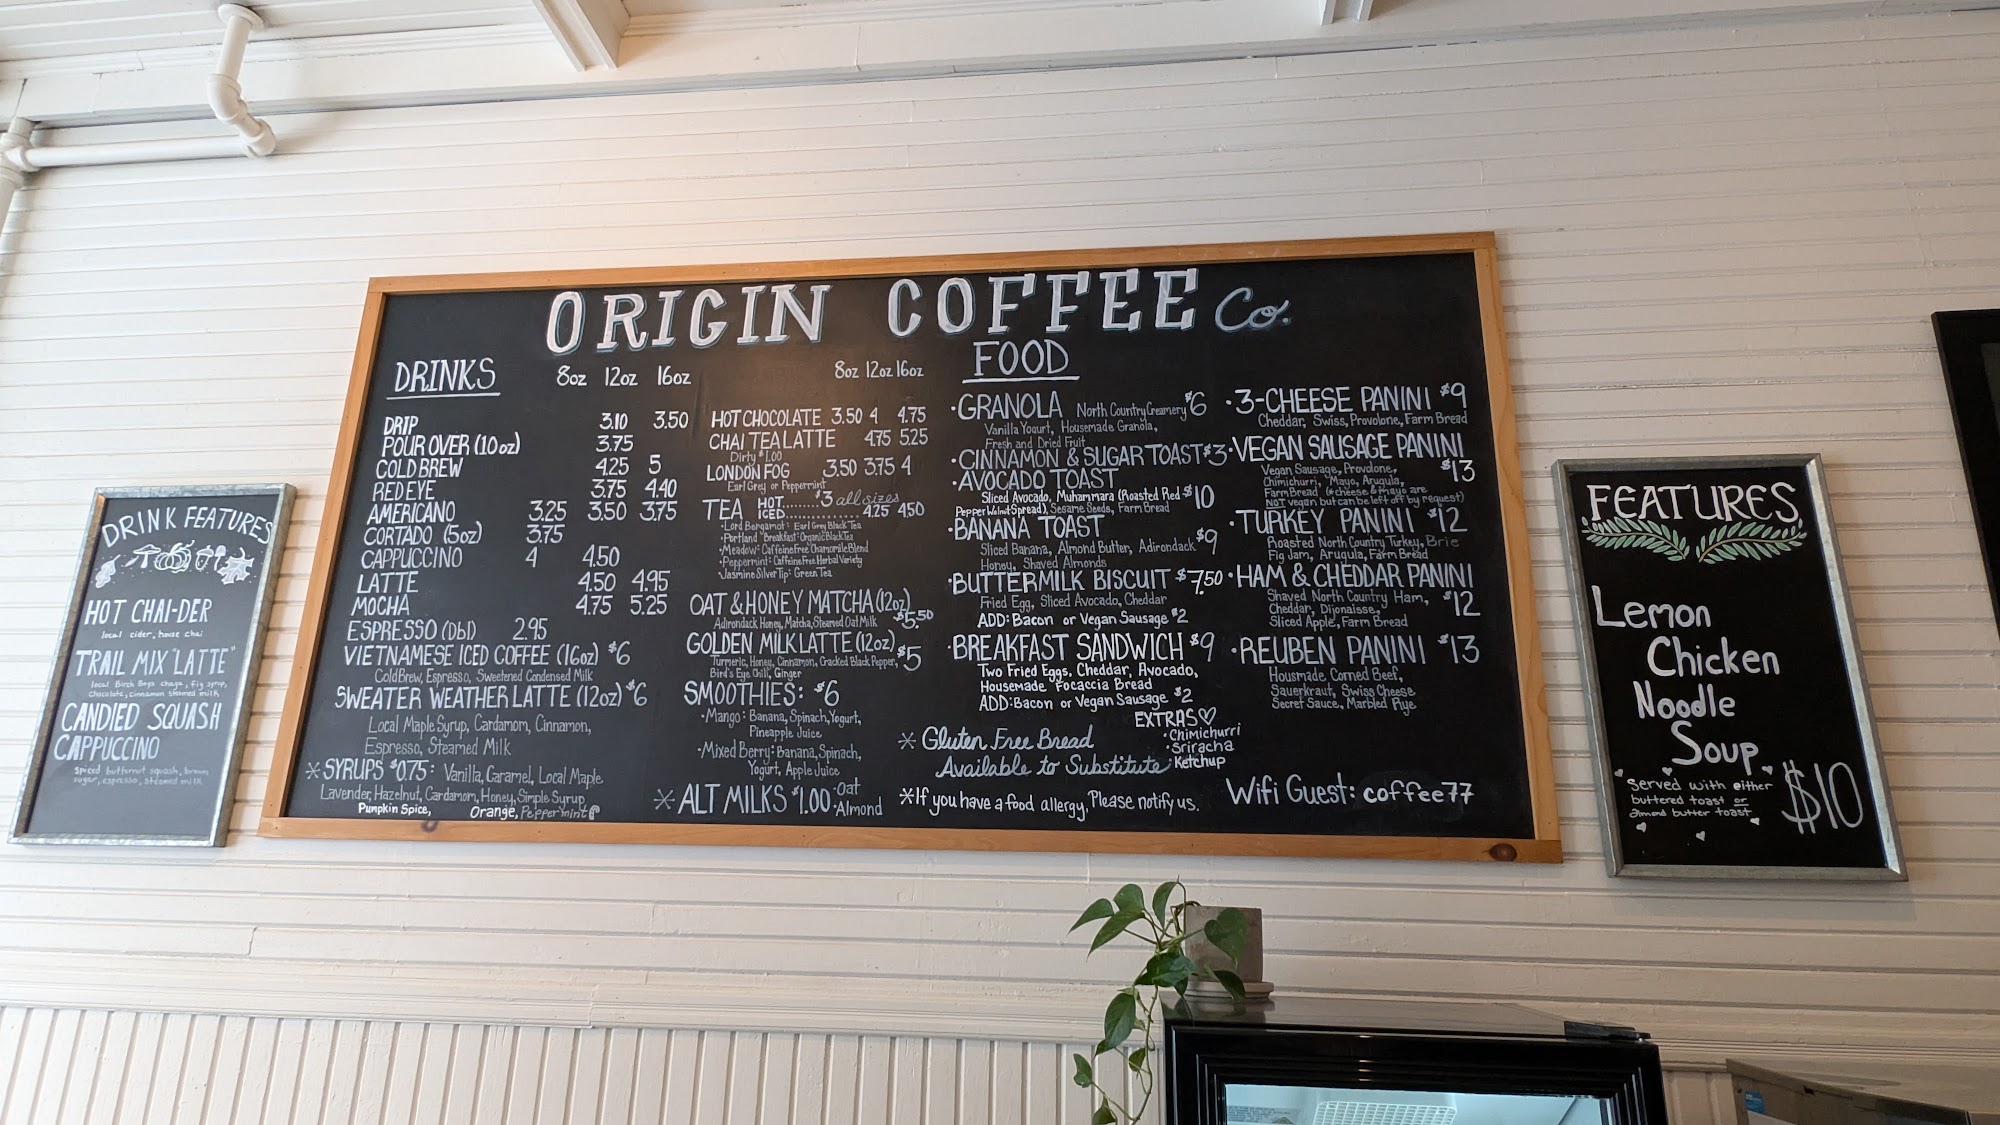 ORIGIN COFFEE Co.
DRINKS
8oz 12oz 16oz
DRIP 3.10 3.50
POUR OVER (10oz) 3.75
COLD BREW 4.25 5
RED EYE 3.75 4.40
AMERICANO 3.25 3.50 3.75
CORTADO (5oz) 3.75
CAPPUCCINO 4 4.50
LATTE 4.50 4.95
MOCHA 4.75 5.25
ESPRESSO (Dbl) 2.95
VIETNAMESE ICED COFFEE (16oz) $6
Cold Brew, Espresso, Sweetened Condensed Milk
SWEATER WEATHER LATTE (12oz) $6
Local Maple Syrup, Cardamom, Cinnamon,
Espresso, Steamed Milk
*SYRUPS $0.75: Vanilla, Caramel, Local Maple
Lavender, Hazelnut, Cardamom, Honey, Simple Syrup
Pumpkin Spice, Orange, Peppermint
8oz 12oz 16oz
HOT CHOCOLATE 3.50 4 4.75
CHAI TEA LATTE 4.75 5.25
Dirty $1.00
LONDON FOG 3.50 3.75 4
Earl Grey or Peppermint
TEA HOT........$3 all sizes
ICED................4.25 4.50
•Lord Bergamot: Earl Grey Black Tea
•Portland "Breakfast: Organic Black Tea
•Meadow: Caffeine Free Chamomile Blend
•Peppermint: Caffeine Free Herbal Variety
•Jasmine Silver Tip: Green Tea
OAT & HONEY MATCHA (12oz)
Adirondack Honey, Matcha, Steamed Oat Milk $5.50
GOLDEN MILK LATTE (12oz)
Turmeric, Honey, Cinnamon, Cracked Black Pepper, $5
Bird's Eye Chili, Ginger
SMOOTHIES: $6
•Mango: Banana, Spinach, Yogurt,
Pineapple Juice
•Mixed Berry: Banana, Spinach,
Yogurt, Apple Juice
*ALT MILKS $1.00 •Oat
•Almond
FOOD
•GRANOLA North Country Creamery $6
Vanilla Yogurt, Housemade Granola,
Fresh and Dried Fruit
•CINNAMON & SUGAR TOAST $3
•AVOCADO TOAST
Sliced Avocado, Muhammara (Roasted Red $10
Pepper Walnut Spread), Sesame Seeds, Farm Bread
•BANANA TOAST
Sliced Banana, Almond Butter, Adirondack $9
Honey, Shaved Almonds
•BUTTERMILK BISCUIT $7.50
Fried Egg, Sliced Avocado, Cheddar
ADD: Bacon or Vegan Sausage $2
•BREAKFAST SANDWICH $9
Two Fried Eggs, Cheddar, Avocado,
Housemade Focaccia Bread
ADD: Bacon or Vegan Sausage $2
EXTRAS♡
•Chimichurri
•Sriracha
•Ketchup
*Gluten Free Bread
Available to Substitute
*If you have a food allergy, Please notify us.
•3-CHEESE PANINI $9
Cheddar, Swiss, Provolone, Farm Bread
•VEGAN SAUSAGE PANINI
Vegan Sausage, Provolone, $13
Chimichurri, Mayo, Arugula,
Farm Bread (*cheese & mayo are
NOT vegan but can be left off by request)
•TURKEY PANINI $12
Roasted North Country Turkey, Brie
Fig Jam, Arugula, Farm Bread
•HAM & CHEDDAR PANINI
Shaved North Country Ham, $12
Cheddar, Dijonaisse,
Sliced Apple, Farm Bread
•REUBEN PANINI $13
Housmade Corned Beef,
Sauerkraut, Swiss Cheese
Secret Sauce, Marbled Rye
Wifi Guest: coffee77
DRINK FEATURES
HOT CHAI-DER
local cider, house chai
TRAIL MIX "LATTE"
local Birch Boys chaga, fig syrup,
chocolate, cinnamon steamed milk
CANDIED SQUASH
CAPPUCCINO
spiced butternut squash, brown
sugar, espresso, steamed milk
FEATURES
Lemon
Chicken
Noodle
Soup
served with either
buttered toast or
almond butter toast
$10